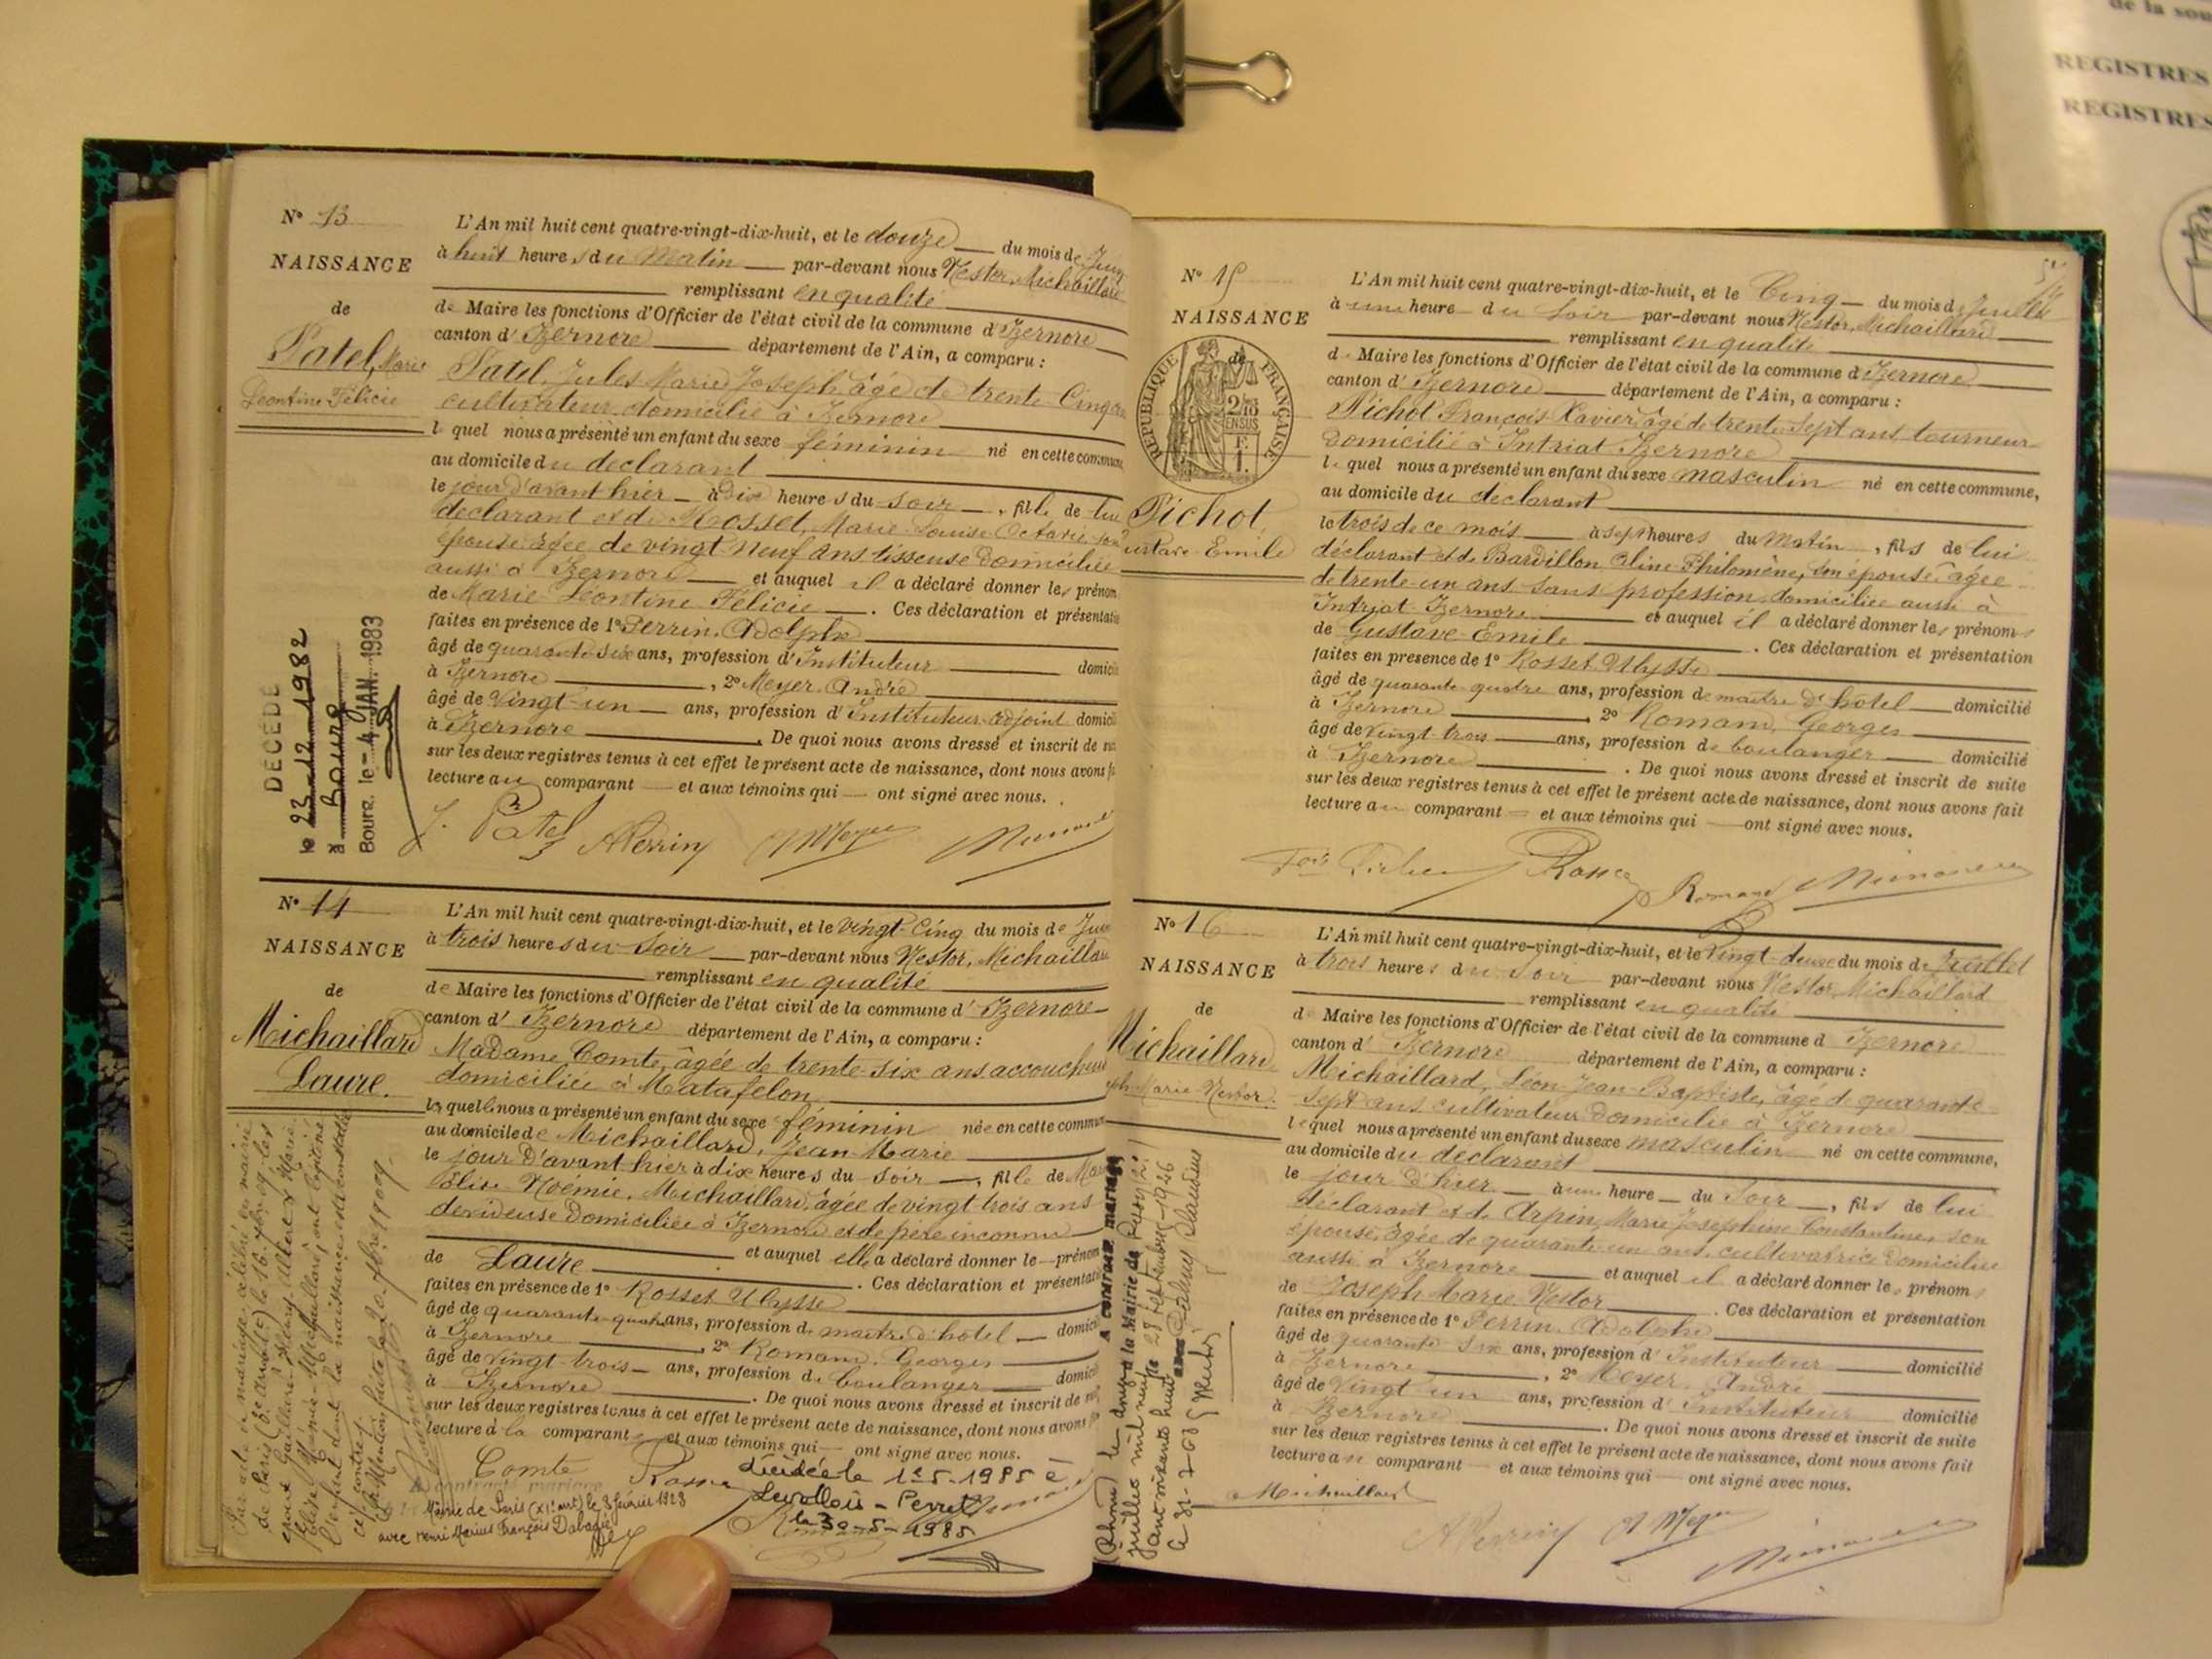 N° 13
NAISSANCE
de
Patel, Marie
Léontine Félicie
L'An mil huit cent quatre-vingt-dix-huit, et le douze du mois de Juin
à huit heures du Matin par-devant nous Nestor, Michaillard
remplissant en qualité
de Maire les fonctions d'Officier de l'état civil de la commune d'Izernore
canton d'Izernore département de l'Ain, a comparu :
Patel, Jules Marie Joseph âgé de trente Cinq ans
cultivateur domicilié à Izernore
lequel nous a présenté un enfant du sexe féminin né en cette commune
au domicile du déclarant
le jour d'avant hier à dix heures du soir, fille de lui
déclarant et de Rosset, Marie Louise Octavie son
épouse âgée de vingt-neuf ans tisseuse domiciliée
aussi à Izernore et auquel il a déclaré donner les prénoms
de Marie Léontine Félicie. Ces déclaration et présentation
faites en présence de 1° Perrin, Adolphe
âgé de quarante-six ans, profession d'Instituteur domici
à Izernore, 2° Meyer, André
âgé de vingt-un ans, profession d'Instituteur-adjoint domici
à Izernore. De quoi nous avons dressé et inscrit de
sur les deux registres tenus à cet effet le présent acte de naissance, dont nous avons
lecture au comparant et aux témoins qui ont signé avec nous.
J. Patel APerrin AMeyer
DECEDÉ
le 23-12-1982
à Bourg
Bourg, le - 4 JAN. 1983
N° 14
NAISSANCE
de
Michaillard
Laure.
L'An mil huit cent quatre-vingt-dix-huit, et le vingt-Cinq du mois de Juin
à trois heures du soir par-devant nous Nestor, Michaillard
remplissant en qualité
de Maire les fonctions d'Officier de l'état civil de la commune d'Izernore
canton d'Izernore département de l'Ain, a comparu :
Madame Comte, âgée de trente-six ans accoucheuse
domiciliée à Matafelon
laquelle nous a présenté un enfant du sexe féminin née en cette commune
au domicile de Michaillard, Jean-Marie
le jour d'avant-hier à dix heures du soir, fille de
Elise Noémie, Michaillard, âgée de vingt trois ans
dévideuse domiciliée à Izernore et de père inconnu
et auquel elle a déclaré donner le prénom
de Laure. Ces déclaration et présentation
faites en présence de 1° Rosset Ulysse
âgé de quarante-quatre ans, profession de maître d'hôtel domici
à Izernore, 2° Romand, Georges
âgé de vingt-trois ans, profession de boulanger domici
à Izernore. De quoi nous avons dressé et inscrit de
sur les deux registres tenus à cet effet le présent acte de naissance, dont nous avons
lecture à la comparante et aux témoins qui ont signé avec nous.
Comte Rosset
décédée le 1er-5-1985 à
Levallois-Perret
le 30-5-1985
A contracté mariage
Mairie de Paris (XIe arrt) le 3 février 1923
avec Henri Marius François Dabadie
Par acte de mariage, célébré en mairie
de Paris
l'enfant dont la naissance est constatée
ci-contre.
N° 15
NAISSANCE
de
RÉPUBLIQUE FRANÇAISE
2/10
EN SUS
F.
1.
Pichot,
Gustave-Emile
L'An mil huit cent quatre-vingt-dix-huit, et le Cinq du mois de Juillet
à une heure du soir par-devant nous Nestor, Michaillard
remplissant en qualité
de Maire les fonctions d'Officier de l'état civil de la commune d'Izernore
canton d'Izernore département de l'Ain, a comparu :
Pichot François Xavier âgé de trente sept ans tourneur
domicilié à Intriat Izernore
lequel nous a présenté un enfant du sexe masculin né en cette commune,
au domicile du déclarant
le trois de ce mois à sept heures du matin, fils de lui
déclarant et de Bardillon Aline Philomène, son épouse âgée
de trente-un ans sans profession domiciliée aussi à
Intriat-Izernore et auquel il a déclaré donner les prénoms
de Gustave-Emile. Ces déclaration et présentation
faites en présence de 1° Rosset Ulysse
âgé de quarante-quatre ans, profession de maître d'hôtel domicilié
à Izernore, 2° Romand, Georges
âgé de vingt-trois ans, profession de boulanger domicilié
à Izernore. De quoi nous avons dressé et inscrit de suite
sur les deux registres tenus à cet effet le présent acte de naissance, dont nous avons fait
lecture au comparant et aux témoins qui ont signé avec nous.
Rosset Romand
N° 16
NAISSANCE
de
Michaillard,
Marie-Nestor.
L'An mil huit cent quatre-vingt-dix-huit, et le vingt-deux du mois de Juillet
à trois heures du soir par-devant nous Nestor, Michaillard
remplissant en qualité
de Maire les fonctions d'Officier de l'état civil de la commune d'Izernore
canton d'Izernore département de l'Ain, a comparu :
Michaillard, Léon Jean-Baptiste, âgé de quarante-
sept ans cultivateur domicilié à Izernore
lequel nous a présenté un enfant du sexe masculin né en cette commune,
au domicile du déclarant
le jour d'hier à une heure du soir, fils de lui
déclarant et de Arpin, Marie Josephine Constantine, son
épouse, âgée de quarante-un ans, cultivatrice domiciliée
aussi à Izernore et auquel il a déclaré donner les prénoms
de Joseph Marie Nestor. Ces déclaration et présentation
faites en présence de 1° Perrin, Adolphe
âgé de quarante-six ans, profession d'Instituteur domicilié
à Izernore, 2° Meyer, André
âgé de vingt-un ans, profession d'Instituteur domicilié
à Izernore. De quoi nous avons dressé et inscrit de suite
sur les deux registres tenus à cet effet le présent acte de naissance, dont nous avons fait
lecture au comparant et aux témoins qui ont signé avec nous.
Michaillard
APerrin AMeyer
A contracté mariage
à la Mairie de
le 28 septembre 1926
avec
(Rhône) le
juillet mil neuf
cent soixante huit
de la sou
REGISTRES
REGISTRES